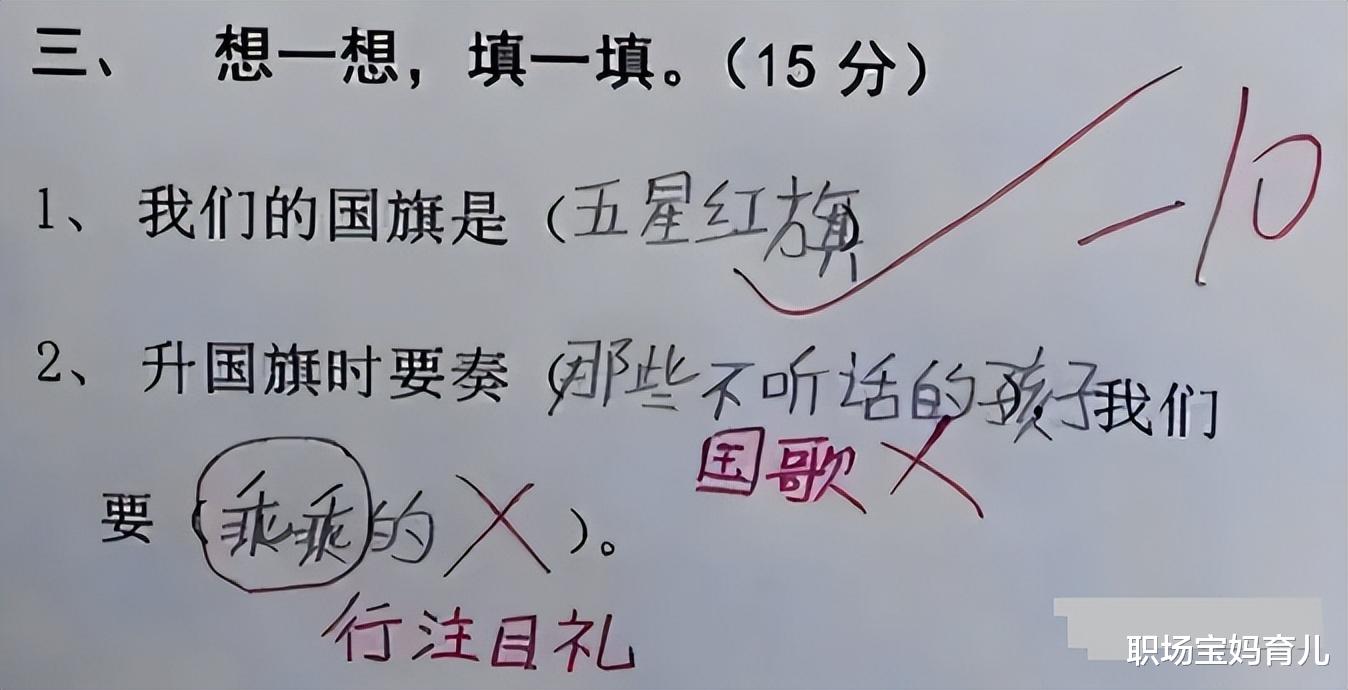 三、 想一想，填一填。（15 分）
1、 我们的国旗是（五星红旗）
-10
2、 升国旗时要奏（那些不听话的孩子我们
国歌
要（乖乖的）。
行注目礼
职场宝妈育儿